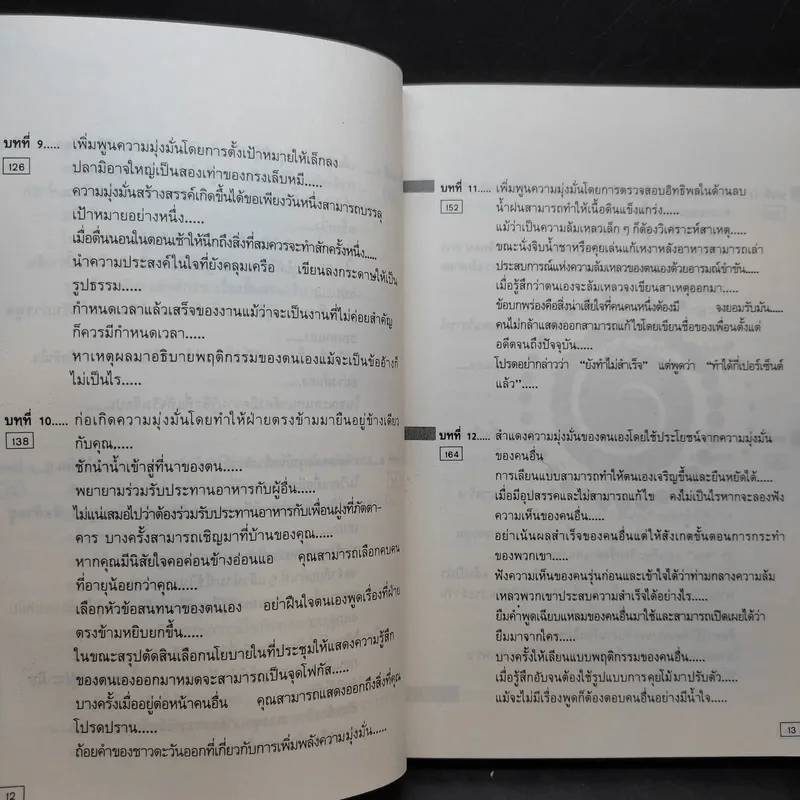 บทที่ 9..... เพิ่มพูนความมุ่งมั่นโดยการตั้งเป้าหมายให้เล็กลง
126 ปลามิอาจใหญ่เป็นสองเท่าของกรงเล็บหมี.....
ความมุ่งมั่นสร้างสรรค์เกิดขึ้นได้ขอเพียงวันหนึ่งสามารถบรรลุ
เป้าหมายอย่างหนึ่ง.....
เมื่อตื่นนอนในตอนเช้าให้นึกถึงสิ่งที่สมควรจะทำสักครั้งหนึ่ง.....
นำความประสงค์ในใจที่ยังคลุมเครือ เขียนลงกระดาษให้เป็น
รูปธรรม.....
กำหนดเวลาแล้วเสร็จของงานแม้ว่าจะเป็นงานที่ไม่ค่อยสำคัญ
ก็ควรมีกำหนดเวลา.....
หาเหตุผลมาอธิบายพฤติกรรมของตนเองแม้จะเป็นข้ออ้างก็
ไม่เป็นไร.....
บทที่ 10..... ก่อเกิดความมุ่งมั่นโดยทำให้ฝ่ายตรงข้ามมายืนอยู่ข้างเดียว
138 กับคุณ.....
ชักนำน้ำเข้าสู่ที่นาของตน.....
พยายามร่วมรับประทานอาหารกับผู้อื่น.....
ไม่แน่เสมอไปว่าต้องร่วมรับประทานอาหารกับเพื่อนฝูงที่ภัตตา-
คาร บางครั้งสามารถเชิญมาที่บ้านของคุณ.....
หากคุณมีนิสัยใจคอค่อนข้างอ่อนแอ คุณสามารถเลือกคบคน
ที่อายุน้อยกว่าคุณ.....
เลือกหัวข้อสนทนาของตนเอง อย่าฝืนใจตนเองพูดเรื่องที่ฝ่าย
ตรงข้ามหยิบยกขึ้น.....
ในขณะสรุปตัดสินเลือกนโยบายในที่ประชุมให้แสดงความรู้สึก
ของตนเองออกมาหมดจะสามารถเป็นจุดโฟกัส.....
บางครั้งเมื่ออยู่ต่อหน้าคนอื่น คุณสามารถแสดงออกถึงสิ่งที่คุณ
โปรดปราน.....
ถ้อยคำของชาวตะวันออกที่เกี่ยวกับการเพิ่มพลังความมุ่งมั่น.....
12
บทที่ 11..... เพิ่มพูนความมุ่งมั่นโดยการตรวจสอบอิทธิพลในด้านลบ
152 น้ำฝนสามารถทำให้เนื้อดินแข็งแกร่ง.....
แม้ว่าเป็นความล้มเหลวเล็ก ๆ ก็ต้องวิเคราะห์สาเหตุ.....
ขณะนั่งจิบน้ำชาหรือคุยเล่นแก้เหงาหลังอาหารสามารถเล่า
ประสบการณ์แห่งความล้มเหลวของตนเองด้วยอารมณ์ขำขัน.....
เมื่อรู้สึกว่าตนเองจะล้มเหลวจงเขียนสาเหตุออกมา.....
ข้อบกพร่องคือสิ่งน่าเสียใจที่คนคนหนึ่งต้องมี จงยอมรับมัน.....
คนไม่กล้าแสดงออกสามารถแก้ไขโดยเขียนชื่อของเพื่อนตั้งแต่
อดีตจนถึงปัจจุบัน.....
โปรดอย่ากล่าวว่า "ยังทำไม่สำเร็จ" แต่พูดว่า "ทำได้กี่เปอร์เซ็นต์
แล้ว".....
บทที่ 12..... สำแดงความมุ่งมั่นของตนเองโดยใช้ประโยชน์จากความมุ่งมั่น
164 ของคนอื่น
การเลียนแบบสามารถทำให้ตนเองเจริญขึ้นและยืนหยัดได้.....
เมื่อมีอุปสรรคและไม่สามารถแก้ไข คงไม่เป็นไรหากจะลองฟัง
ความเห็นของคนอื่น.....
อย่าเน้นผลสำเร็จของคนอื่นแต่ให้สังเกตขั้นตอนการกระทำ
ของพวกเขา.....
ฟังความเห็นของคนรุ่นก่อนและเข้าใจได้ว่าท่ามกลางความล้ม
เหลวพวกเขาประสบความสำเร็จได้อย่างไร.....
ยืมคำพูดเฉียบแหลมของคนอื่นมาใช้และสามารถเปิดเผยได้ว่า
ยืมมาจากใคร.....
บางครั้งให้เลียนแบบพฤติกรรมของคนอื่น.....
เมื่อรู้สึกอับจนต้องใช้รูปแบบการคุยโม้มาปรับตัว.....
แม้จะไม่มีเรื่องพูดก็ต้องตอบคนอื่นอย่างมีน้ำใจ.....
13